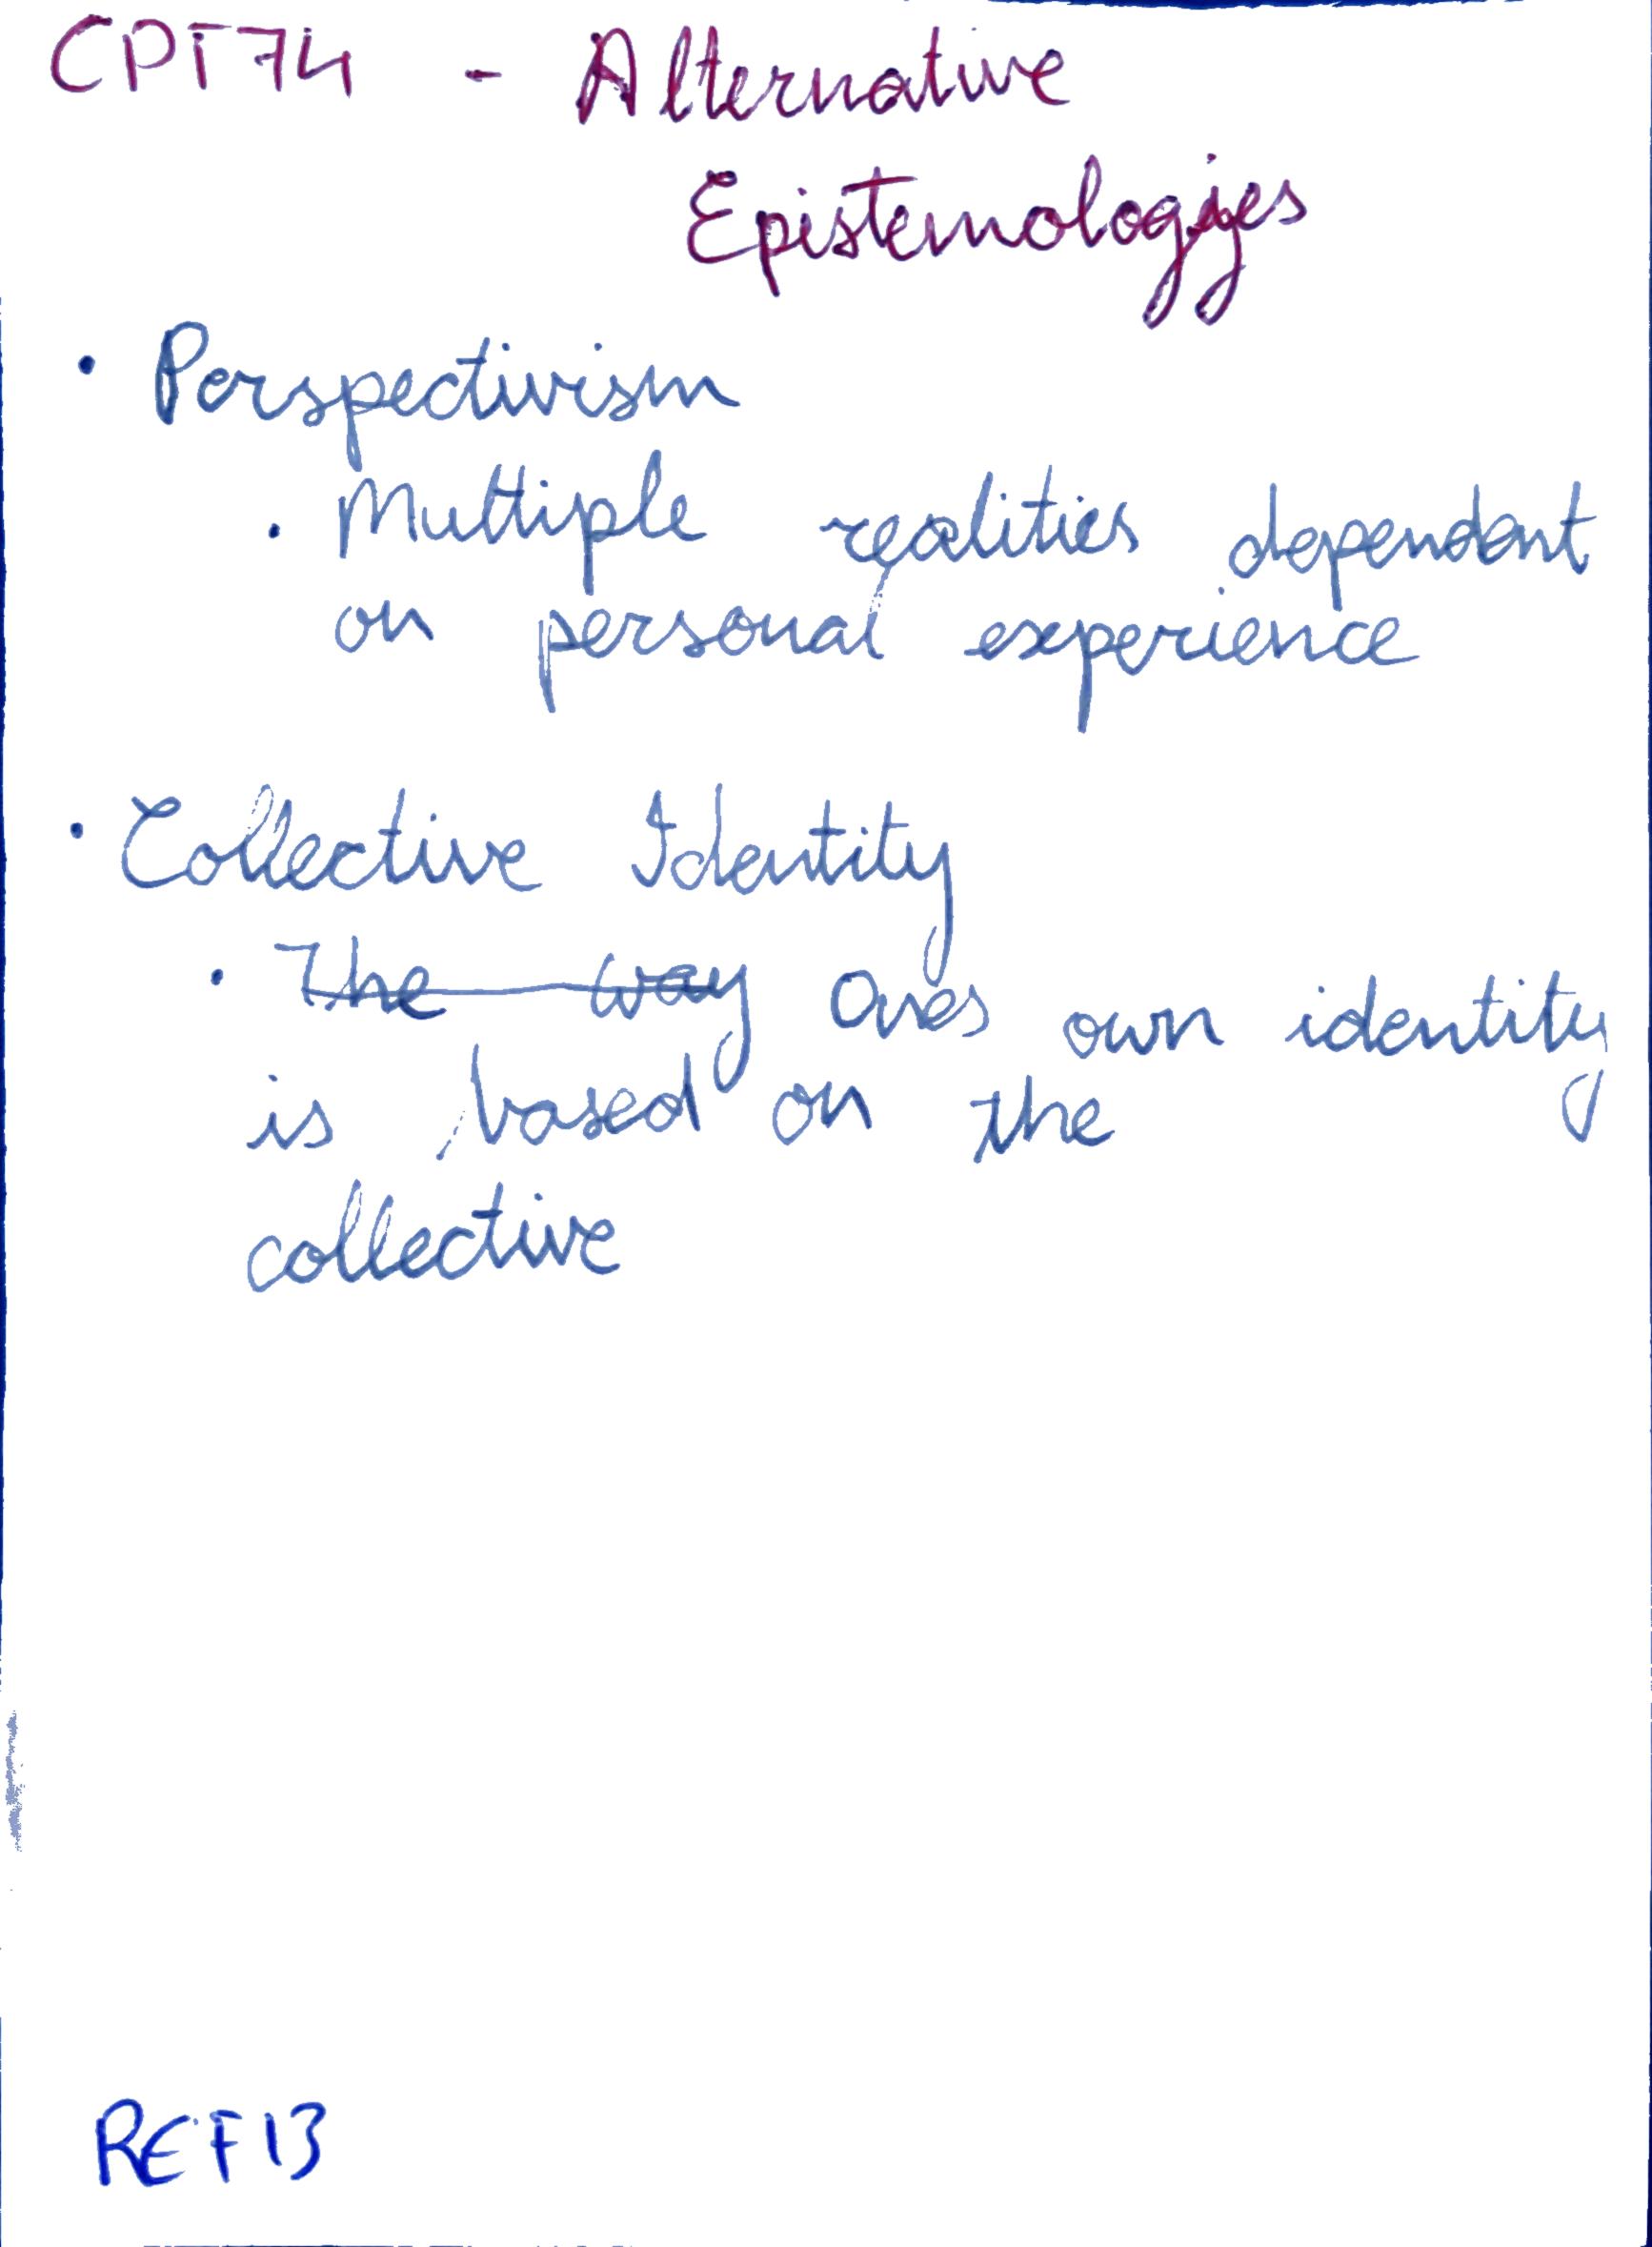 CPT74 - Alternative
Epistemologies
• Perspectivism
• Multiple realities dependent
on personal experience
• Collective Identity
• The way Ones own identity
is based on the
collective
REF13